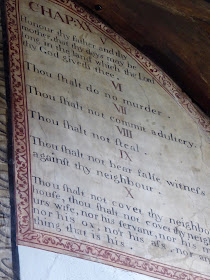 CHAP: X
Honour thy father and thy
mother, that thy days may be
long in the land which the Lord
thy God giveth thee.
VI
Thou shalt do no murder.
VII
Thou shalt not commit adultery.
VIII
Thou shalt not steal.
IX
Thou shalt not bear false witness
against thy neighbour.
X
Thou shalt not covet thy neighbour
house, thou shalt not covet thy neighb
urs wife, nor his servant, nor his m
nor his ox, nor his ass, nor any
thing that is his.